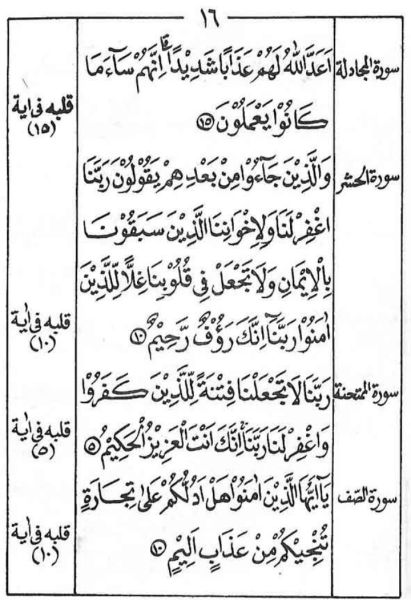 ١٦
سورة المجادلة
اَعَدَّ اللهُ لَهُمْ عَذَابًا شَدِيْدًا ۗ اِنَّهُمْ سَآءَ مَا
كَانُوْا يَعْمَلُوْنَ ١٥
قلبه فى اية
(١٥)
سورة الحشر
وَالَّذِيْنَ جَآءُوْا مِنْ بَعْدِهِمْ يَقُوْلُوْنَ رَبَّنَا
اغْفِرْ لَنَا وَلِاِخْوَانِنَا الَّذِيْنَ سَبَقُوْنَا
بِالْاِيْمَانِ وَلَا تَجْعَلْ فِى قُلُوْبِنَا غِلًّا لِّلَّذِيْنَ
اٰمَنُوْا رَبَّنَآ اِنَّكَ رَؤُفٌ رَّحِيْمٌ ١٠
قلبه فى اية
(١٠)
سورة الممتحنة
رَبَّنَا لَا تَجْعَلْنَا فِتْنَةً لِّلَّذِيْنَ كَفَرُوْا
وَاغْفِرْ لَنَا رَبَّنَآ اِنَّكَ اَنْتَ الْعَزِيْزُ الْحَكِيْمُ ٥
قلبه فى اية
(٥)
سورة الصّف
يَآاَيُّهَا الَّذِيْنَ اٰمَنُوْا هَلْ اَدُلُّكُمْ عَلٰى تِجَارَةٍ
تُنْجِيْكُمْ مِّنْ عَذَابٍ اَلِيْمٍ ١٠
قلبه فى اية
(١٠)